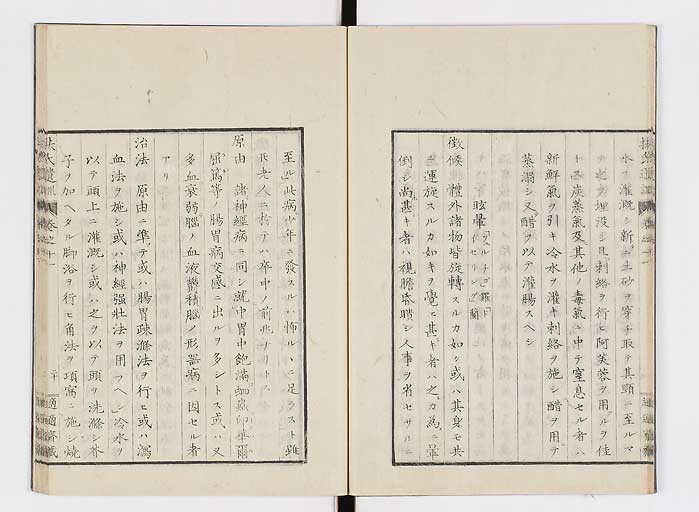 水ヲ灌漑シ新ニ土砂ヲ穿チ取テ其頸ニ至ルマ
埋没シ且刺絡ヲ行ヒ阿芙蓉ヲ用ルヲ佳
トス炭蒸氣及其他ノ毒氣ニ中テ窒息セル者ハ
新鮮氣ヲ引キ冷水ヲ灌キ刺絡ヲ施シ醋ヲ用テ
蒸溻シ又醋ヲ以テ灌腸スヘシ
眩暈
徴候 體外諸物皆旋轉スルカ如シ或ハ其身モ共
ニ運旋スルカ如キヲ覺ヱ甚キ者ハ之カ為ニ暈
倒シ尚甚キ者ハ視膽昏聵シ人事ヲ省セサルニ
至ル此病少年ニ發スルハ怖ルヽニ足ラスト雖
𪜈老人ニ於テハ卒中ノ前兆ナリトス
原由 諸神經病ニ同シ就中胃中飽滿蚘蟲卬華爾
屈篤等ノ腸胃病交感ニ出ルヲ多シトス或ハ又
多血衰弱腦ノ血液鬱積腦ノ形器病ニ因セル者
アリ
治法 原由ニ準テ或ハ腸胃疎滌法ヲ行ヒ或ハ瀉
血法ヲ施シ或ハ神經强壯法ヲ用フヘシ冷水ヲ
以テ頭上ニ灌漑シ或ハ之ヲ以テ頭ヲ洗滌シ芥
子ヲ加ヘタル脚浴ヲ行ヒ角法ヲ項窩ニ施シ燒
扶氏遺訓 卷之十
二十
適適齋藏